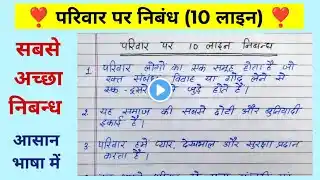 ❣️ परिवार पर निबंध (10 लाइन) ❣️
सबसे
अच्छा
निबन्ध
आसान
भाषा में
परिवार पर 10 लाइन निबन्ध
1 परिवार लोगों का एक समूह होता है जो
रक्त संबंध, विवाह या गोद लेने से
एक-दूसरे से जुड़े होते हैं।
2 यह समाज की सबसे छोटी और बुनियादी
इकाई है।
3 परिवार हमें प्यार, देखभाल और सुरक्षा प्रदान
करता है।